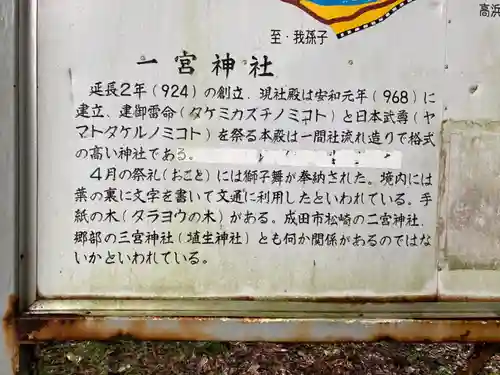 高浜
至・我孫子
一宮神社
延長2年(924)の創立、現社殿は安和元年(968)に
建立、建御雷命(タケミカズチノミコト)と日本武尊(ヤ
マトタケルノミコト)を祭る本殿は一間社流れ造りで格式
の高い神社である。
4月の祭礼(おこと)には獅子舞が奉納された。境内には
葉の裏に文字を書いて文通に利用したといわれている。手
紙の木(タラヨウの木)がある。成田市松崎の二宮神社、
郷部の三宮神社(埴生神社)とも何か関係があるのではな
いかといわれている。